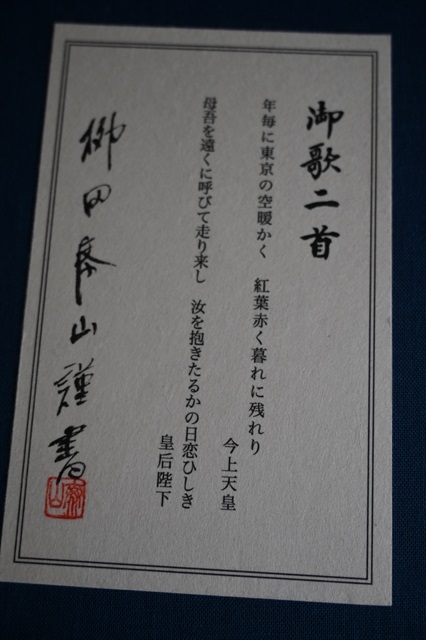 御歌二首
年毎に東京の空暖かく 紅葉赤く暮れに残れり
今上天皇
母吾を遠くに呼びて走り来し 汝を抱きたるかの日恋ひしき
皇后陛下
柳田泰山謹書
泰山